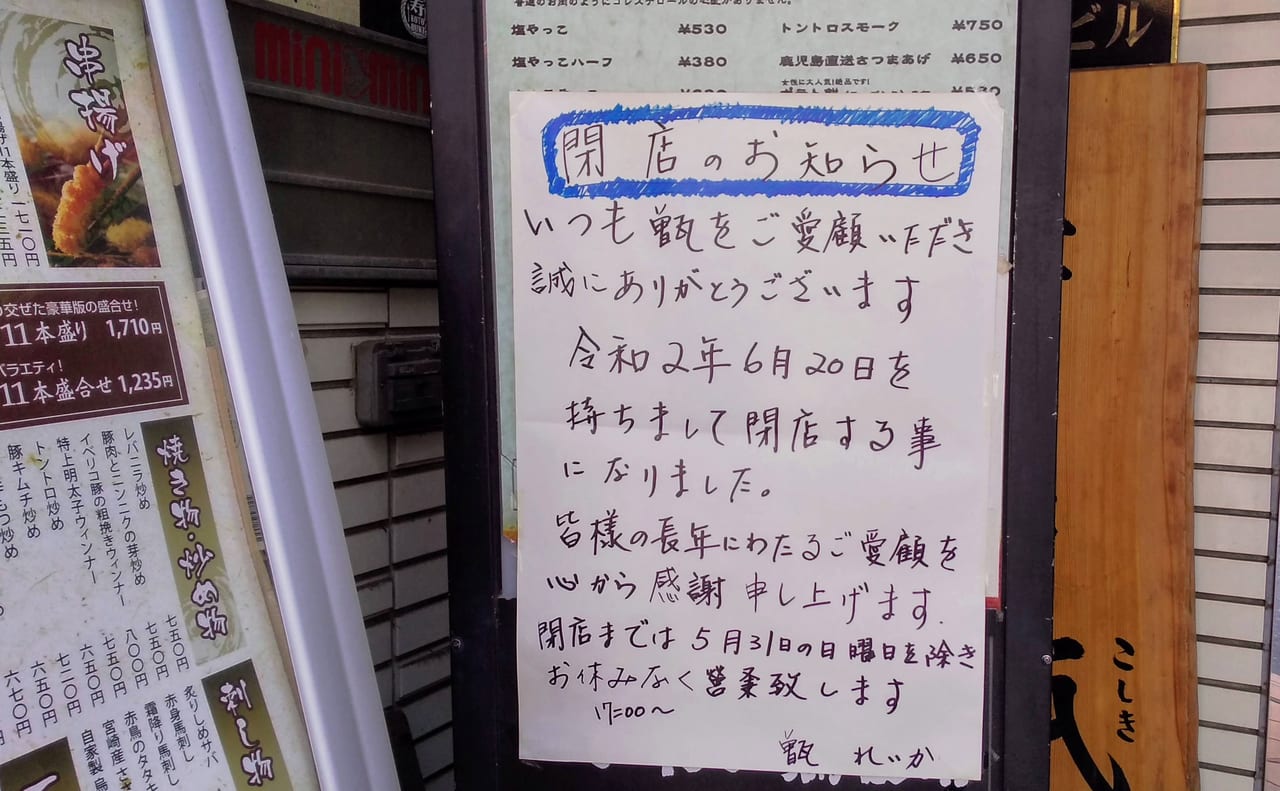 串揚げ
の交ぜた豪華版の盛合せ!
11本盛り 1,710円
バラエティ!
11本盛合せ 1,235円
焼き物・炒め物
レバニラ炒め
豚肉とニンニクの芽炒め
イベリコ豚の粗挽きウィンナー
特上明太子ウィンナー
トントロ炒め
豚キムチ炒め
七五〇円
七五〇円
八〇〇円
七五〇円
六五〇円
七二〇円
六五〇円
六七〇円
刺し物
炙りしめサバ
赤身馬刺し
霜降り馬刺し
赤鳥のタタキ
mini mini
塩やっこ ¥530
塩やっこハーフ ¥380
トントロスモーク ¥750
鹿児島直送さつまあげ ¥650
女性に大人気!絶品です!
¥530
ビル
閉店のお知らせ
いつも甑をご愛顧いただき
誠にありがとうございます
令和2年6月20日を
持ちまして閉店する事
になりました。
皆様の長年にわたるご愛顧を
心から感謝申し上げます.
閉店までは5月31日の日曜日を除き
お休みなく営業致します
17:00〜
甑 れいか
こしき